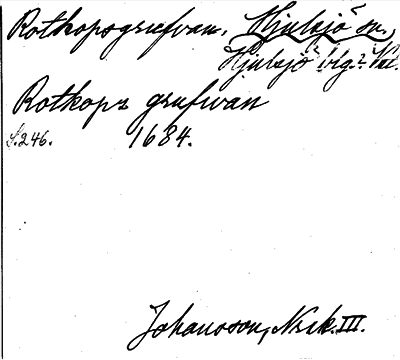 Rotkopsgrufvan, Hjulsjö sn.,
Hjulsjö blg. Vstl.
Rotkops grufwan
S. 246. 1684.
Johansson, Nrsk. III.